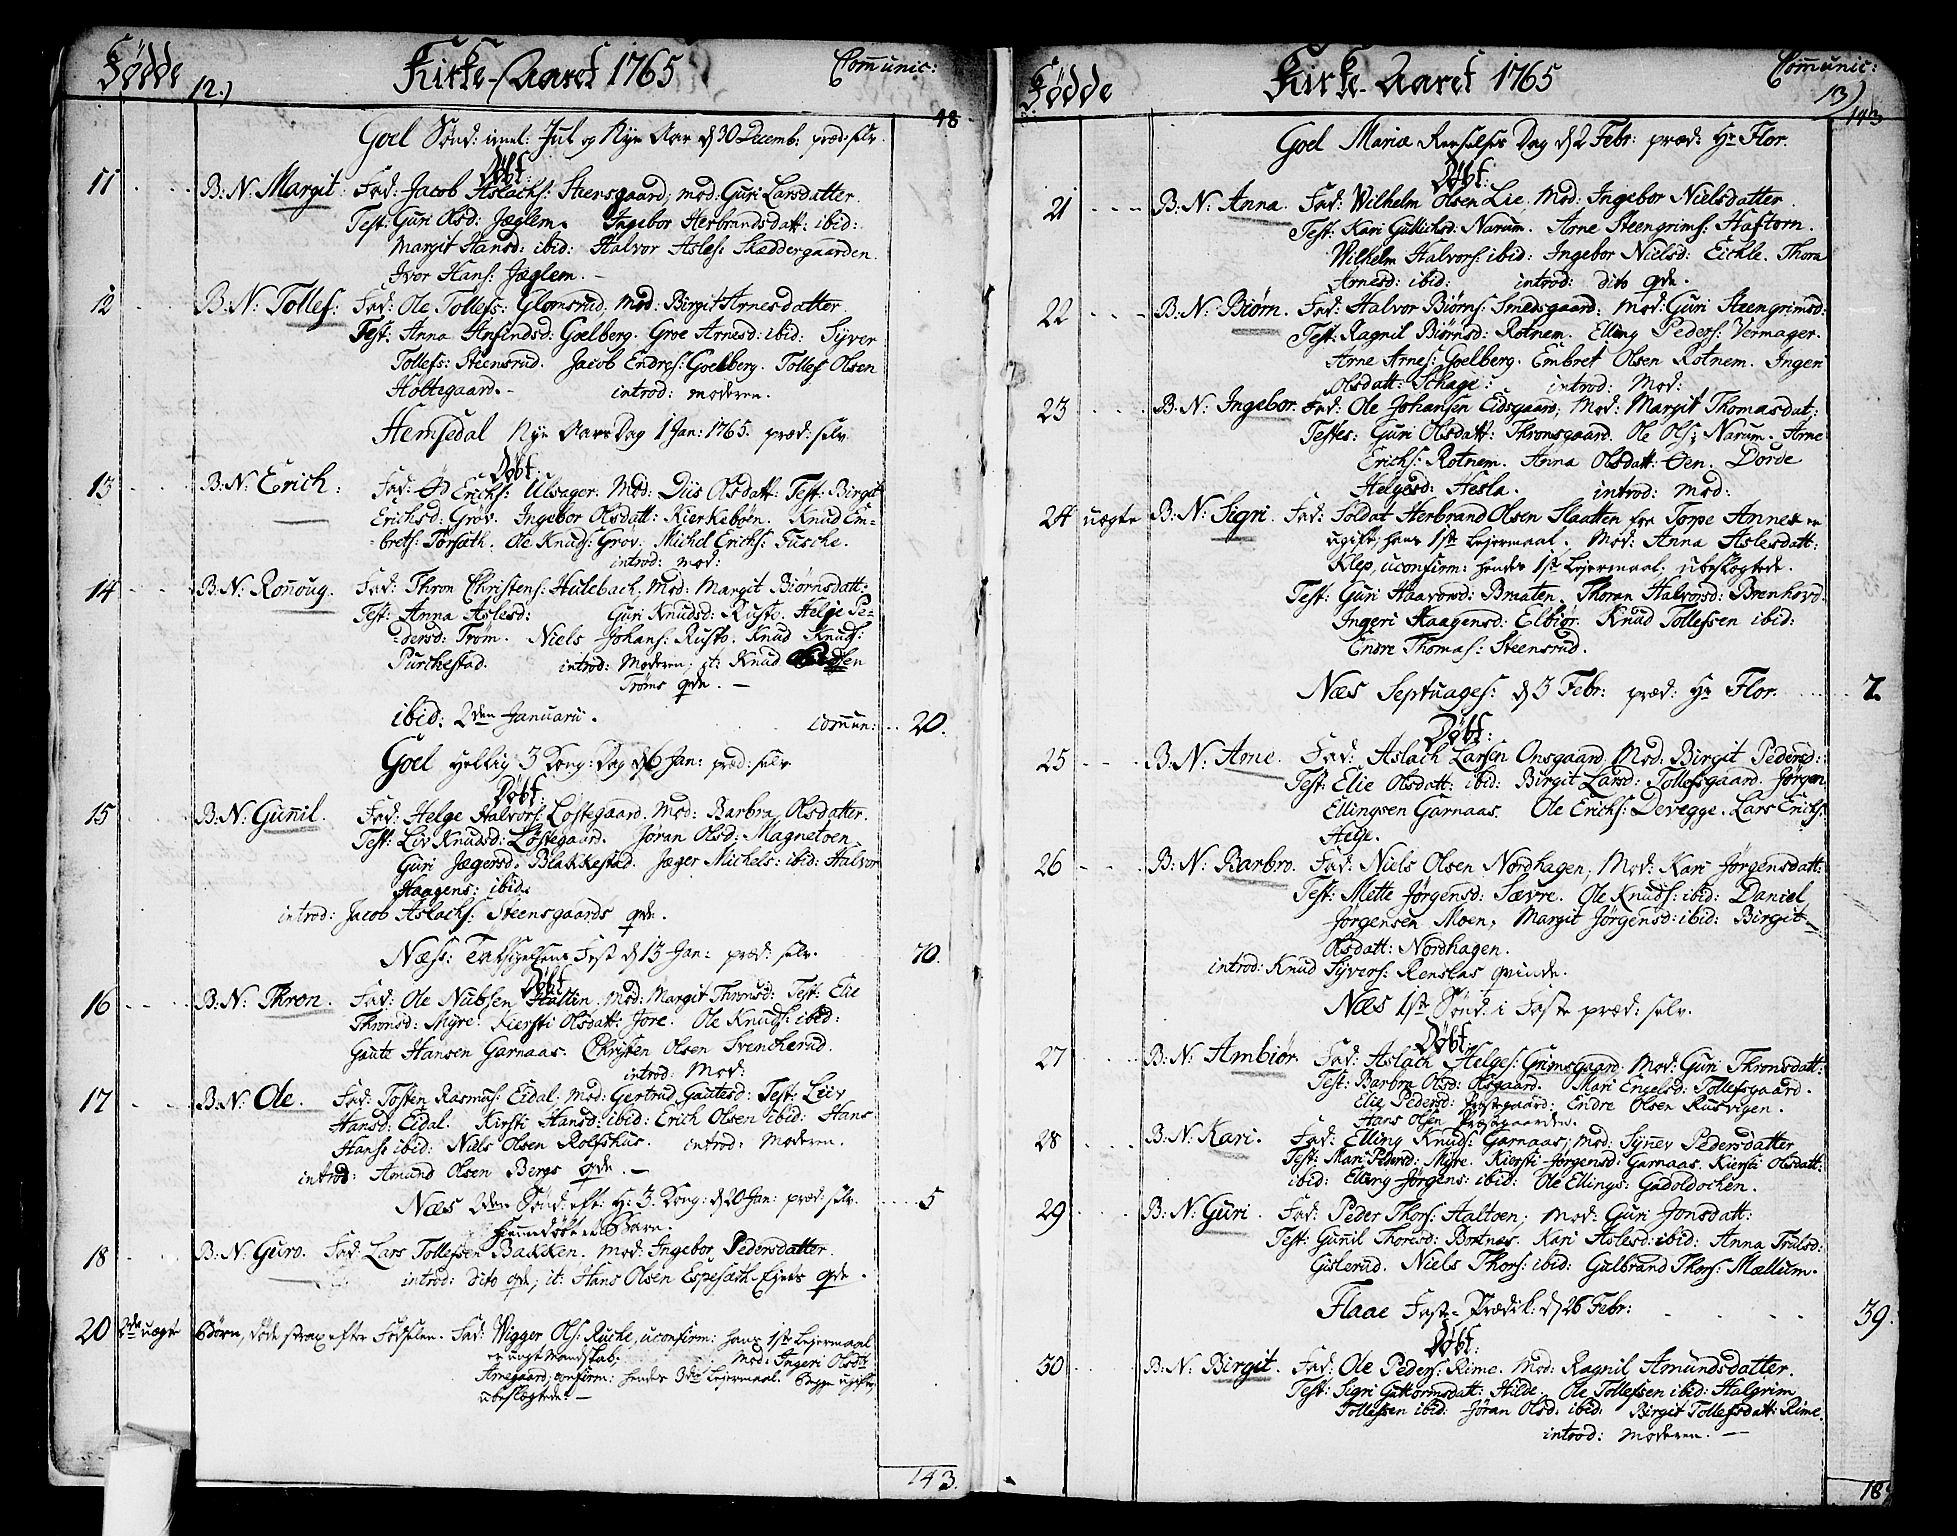 Fødde 12.) Kirke-Aaret 1765 Communic:
48
Goel Sønd: imel: Jul og Nyt Aar d 30 Decemb: præd: selv.
Døbt:
11 B: N: Margit. Fad: Jacob Aslachs: Steensgaard, mod: Guri Larsdatter.
Test: Guri Olsd: Jæglem. Ingebor Herbrandsdatt: ibid:
Margit Hansd: ibid: Halvor Asles: Skaddergaarden.
Ivor Hans: Jæglem. –
12 B: N: Tollef: Fad: Ole Tollefs: Glomsrud. Mod: Birgit Arnesdatter
Test: Anna Anfindsd: Goelberg. Groe Arnesd: ibid: Syver
Tollefs: Steensrud. Jacob Endres: Goelberg. Tollef Olsen
Holtegaard. – introd: moderen.
Hemsedal Nyt Aars Dag 1 Jan: 1765. præd: selv.
Døbt:
13 B: N: Erich: Fad: Od Erichs: Ulsager. Mod: Diis Olsdatt: Test: Birgit
Erichsd: Grøv. Ingebor Olsdatt: Kierkebøen. Knud Em-
brets: Torsæth. Ole Knuds: Grov. Michel Erichs: Fusche.
introd: mod:
14 B: N: Ronoug. Fad: Thron Christens: Hulebach, Mod: Margit Biørnsdatt:
Test: Anna Aslesd: Guri Knudsd: Ruste. Helge Pe-
dersd: Trøm. Niels Johans: Rusto. Knud Knuds:
Purchestad. introd: Moderen; it: Knud
Trøms qvde. –
ibid: 2den Januarii. commun: 20.
Goel Hellig 3 Kong: Dag d 6 Jan: præd: selv
Døbt:
15 B: N: Gunil. Fad: Helge Halvors: Løstegaard. Mod: Barbra Olsdatter.
Test: Liv Knudsd: Løstegaard. Jøran Olsd: Magnetoen
Guri Jægersd: Blakkestad. Jæger Michels: ibid: Halvor
Haagens: ibid.
introd: Jacob Aslachs: Steensgaards qvde.
Næss: Taksigelsens Fest d 13 Jan: præd: selv. 70.
Døbt
16 B: N: Thron. Fad: Ole Nubsen Haltin. mod: Margit Thronsd: Test: Elie
Thronsd: Myre. Kiersti Olsdatt: Jore. Ole Knuds: ibid:
Gaute Hansen Garnaas. Christen Olsen Svencherud.
introd: Mod:
17 B: N: Ole. Fad: Tosten Rasmus: Eidal. Mod: Gertrud Gautesd: Test: Leiv
Hansd: Eidal. Kirsti Hansd: ibid: Erich Olsen ibid: Hans
Hans: ibid: Niels Olsen Rolfshus. introd: Moderen.
introd: Amund Olsen Bergs qvde. –
Næs 2den Sønd: eft: H: 3. Kong: d 20 Jan: præd: selv. 5
Hiemdøbt Barn.
18 B: N: Guro. Fad: Lars Tollefsen Bakken. Mod: Ingebor Pedersdatter.
introd: dito qvde; it: Hans Olsen Espesæth Eiets qvde.
20 2de uægte Børn, døde strax efter Fødselen. Fad: Wigger Ols: Ruche, uconfirm: hans 1ste Lejermaal
er ungt Mandskab; Mod: Ingeri Olsdtt
Arnegaard, confirm: hendes 3die Lejermaal. Begge ugifte,
ubeslægtede. –
143.
Fødde Kirke-Aaret 1765 Communic:
13) 143
Goel Mariæ Renselses Dag d 2 Febr: præd: Hr Flor.
Døbt:
21 B: N: Anna. Fad: Wilhelm Olsen Lie, Mod: Ingebor Nielsdatter.
Test: Kari Gullichsd: Narum. Arne Steengrims: Haftorn.
Wilhelm Halvors: ibid: Ingebor Nielsd: Eickle. Thora
Arnesd: ibid: introd: dito qvde.
22 B: N: Biørn. Fad: Halvor Biørns: Smedsgaard. Mod: Guri Steengrimsd:
Test: Ragnil Biørnsd: Rotnem. Elling Peders: Vermager.
Arne Arnes: Goelberg. Embret Olsen Rotnem. Ingeri
Olsdatt: Schage: introd: Mod:
23 B: N: Ingebor. Fad: Ole Johansen Eidsgaard, Mod: Margit Thomasdat:
Testes: Guri Olsdatt: Thronsgaard. Ole Ols: Narum. Arne
Erichs: Rotnem. Anna Olsdatt: Øen. Dorde
Helgesd: Hesla. introd: mod:
24 uægte B: N: Sigri. Fad: Soldat Herbrand Olsen Slaatten fra Torpe Annex er
ugift, hans 1ste Lejermaal. Mod: Anna Aslesdatt:
Klep, uconfirm: hendes 1ste Lejermaal, ubeslægtede.
Test: Guri Haavorsd: Braaten. Thoran Halvorsd: Brenhovd.
Ingeri Haagensd: Elbiør. Knud Tollefsen ibid:
Endre Thomas: Steensrud.
Næs Septuages: d 3 Febr: præd: Hr Flor. 7.
Døbt:
25 B: N: Arne. Fad: Aslach Larsen Onsgaard. Mod: Birgit Pedersd:
Test: Elie Olsdatt: ibid: Birgit Larsd: Tollefsgaard. Jørgen
Ellingsen Garnaas. Ole Erichs: Devegge. Lars Erichs:
Helje.
26 B: N: Barbro. Fad: Niels Olsen Nordhagen, Mod: Kari Jørgensdatt:
Test: Mette Jørgensd: Sævre. Ole Knuds: ibid: Daniel
Jørgensen Moen, Margit Jørgensd: ibid: Birgit
Olsdatt: Nordhagen.
introd: Knud Syvers: Renslas qvinde.
Næs 1ste Sønd: i Faste præd: selv.
Døbt.
27 B: N: Ambiør. Fad: Aslach Helges: Grimsgaard. Mod: Guri Thronsdatt:
Test: Barbra Olsd: Olsgaard. Mari Engelsd: Tollefsgaard.
Elie Pedersd: Endre Olsen Rusvigen.
Hans Olsen Præstegaarden.
28 B: N: Kari. Fad: Elling Knuds: Garnaas, Mod: Synev Pedersdatter
Test: Mari Pedersd: Myre. Kiersti Jørgensd: Garnaas. Kiersti Olsdatt:
ibid: Elling Jørgens: ibid: Ole Ellings: Gadoldocken.
29 B: N: Guri. Fad: Peder Thors: Haltoen, Mod: Guri Jonsdatt:
Test: Gunil Thoresd: Bortnæs. Kari Aslesd: ibid: Anna Trulsd:
Gislerud. Niels Thors: ibid: Gulbrand Thors: Mællum.
Flaae Faste-Prædik: d 26 Febr: 39.
Døbt:
30 B: N: Birgit. Fad: Ole Peders: Rime. Mod: Ragnil Amundsdatter.
Test: Sigri Guttormsdatt: Hilde. Ole Tollefsen ibid: Halgrim
Tollefsen ibid: Jøran Olsd: ibid: Birgit Tollefsdatt: Rime.
introd: Moderen. –